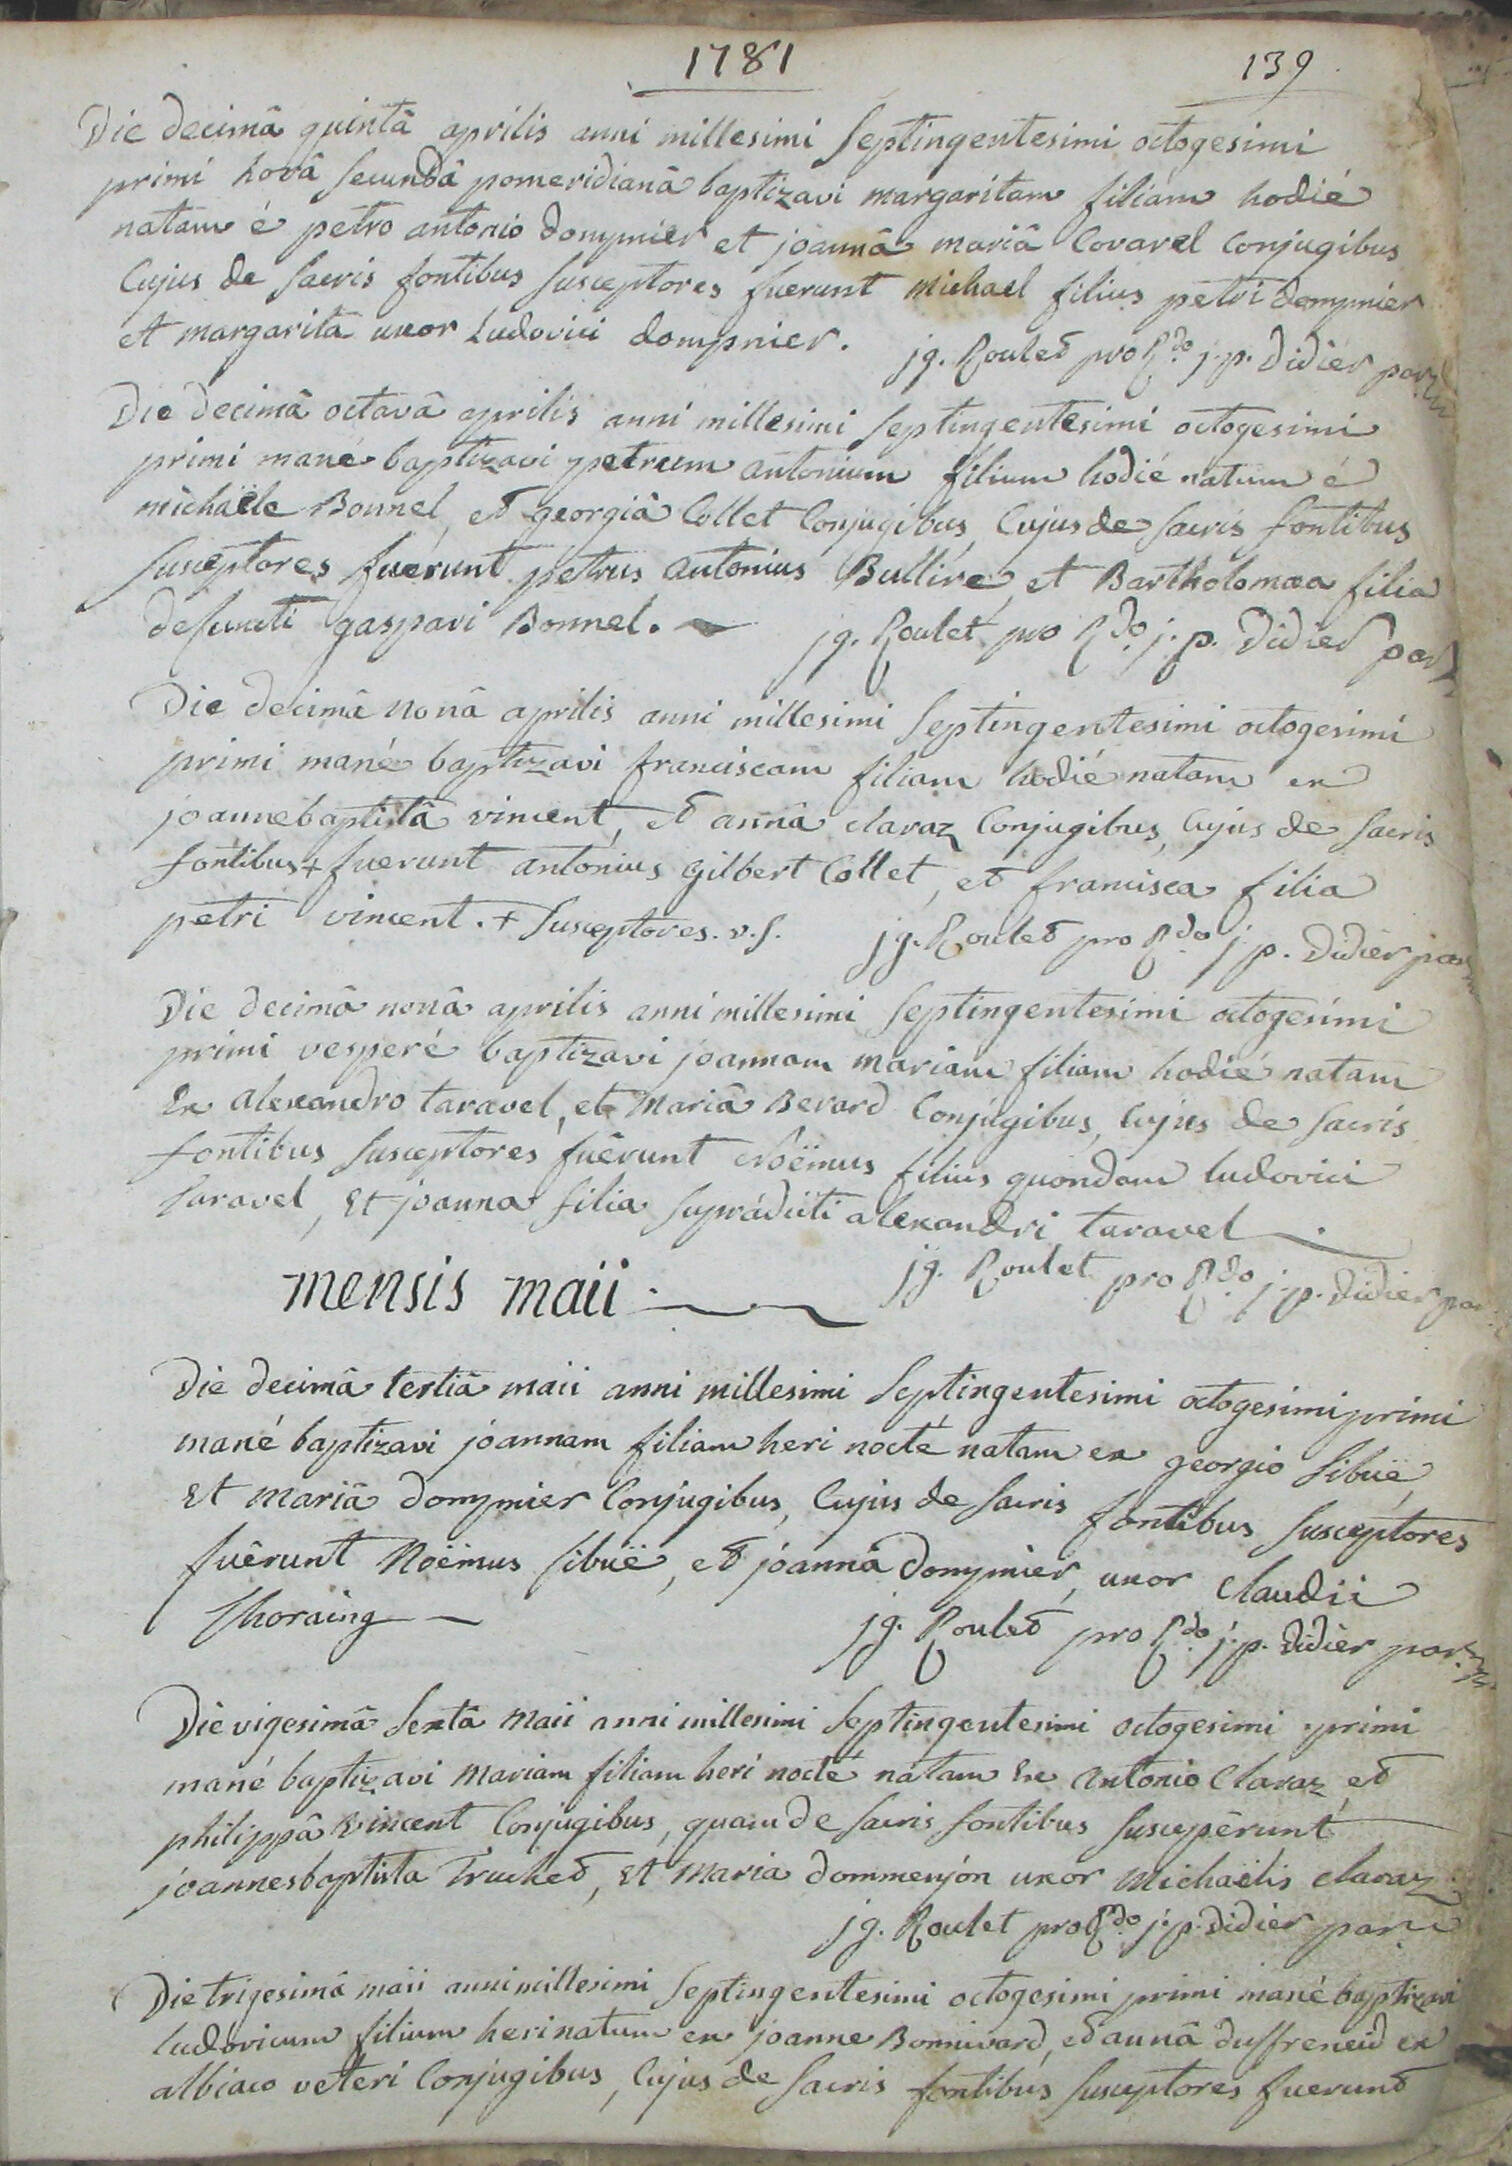 1781
139
Die decimâ quintâ aprilis anni millesimi septingentesimi octogesimi
primi horâ secundâ pomeridianâ baptizavi margaritam filiam hodié
natam é petro antonio dompnier et joannâ mariâ Covarel Conjugibus
Cujus de sacris fontibus susceptores fuerunt michael filius petri dompnier
et margarita uxor Ludovici dompnier.
jg. Roulet pro Rdo j. p. didier
Die decimâ octavâ aprilis anni millesimi septingentesimi octogesimi
primi mané baptizavi petrum antonium filium hodié natum é
michaële Bonnel, et georgiâ Collet Conjugibus, Cujus de sacris fontibus
susceptores fuérunt petrus antonius Bullire, et Bartholomaea filia
defuncti gaspari Bonnel.
jg. Roulet pro Rdo j. p. didier
Die decimâ nonâ aprilis anni millesimi septingentesimi octogesimi
primi mané baptizavi franciscam filiam hodié natam ex
joannebaptistâ vincent, et annâ claraz Conjugibus, Cujus de sacris
fontibus + fuerunt antonius gilbert Collet, et francisca filia
petri vincent. + susceptores. v. s.
jg. Roulet pro Rdo j. p. didier
Die decimâ nonâ aprilis anni millesimi septingentesimi octogesimi
primi vesperé baptizavi joannam mariam filiam hodié natam
Ex alexandro taravel, et mariâ Berard Conjugibus, Cujus de sacris
fontibus susceptores fuêrunt noëmus filius quondam ludovici
taravel, Et joanna filia suprádicti alexandri taravel
jg. Roulet pro Rdo j. p. didier
mensis maii
Die decimâ tertiâ maii anni millesimi septingentesimi octogesimi primi
mané baptizavi joannam filiam heri nocté natam ex georgio sibuë,
Et mariâ dompnier Conjugibus, Cujus de sacris fontibus susceptores
fuêrunt Noëmus sibuë, et joanna dompnier, uxor claudii
thoraing
jg. Roulet pro Rdo j. p. didier
Die vigesimâ sextâ maii anni millesimi septingentesimi octogesimi primi
mané baptizavi mariam filiam heri nocté natam Ex antonio Claraz, et
philippâ vincent Conjugibus, quam de sacris fontibus suscepérunt
joannesbaptista Truchet, Et maria dommenjon uxor michaëlis claraz
jg. Roulet pro Rdo j. p. didier
Die trigesimâ maii anni millesimi septingentesimi octogesimi primi mané baptizavi
ludovicum filium heri natum ex joanne Bonnivard, et annâ duffreneid ex
albiaco veteri Conjugibus, Cujus de sacris fontibus susceptores fuerunt